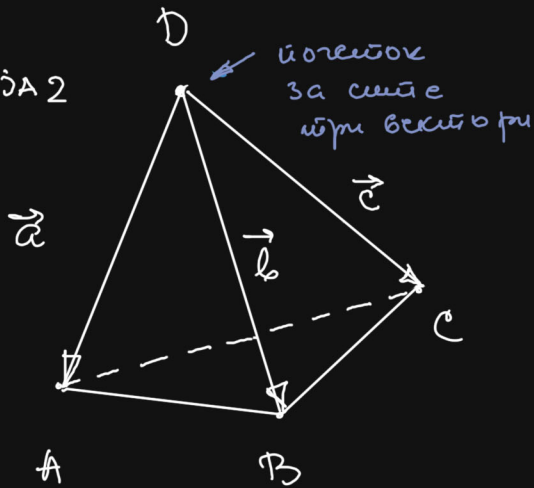 D
почеток
за сите
три вектори
ЗА 2
→a
→b
→c
C
A
B